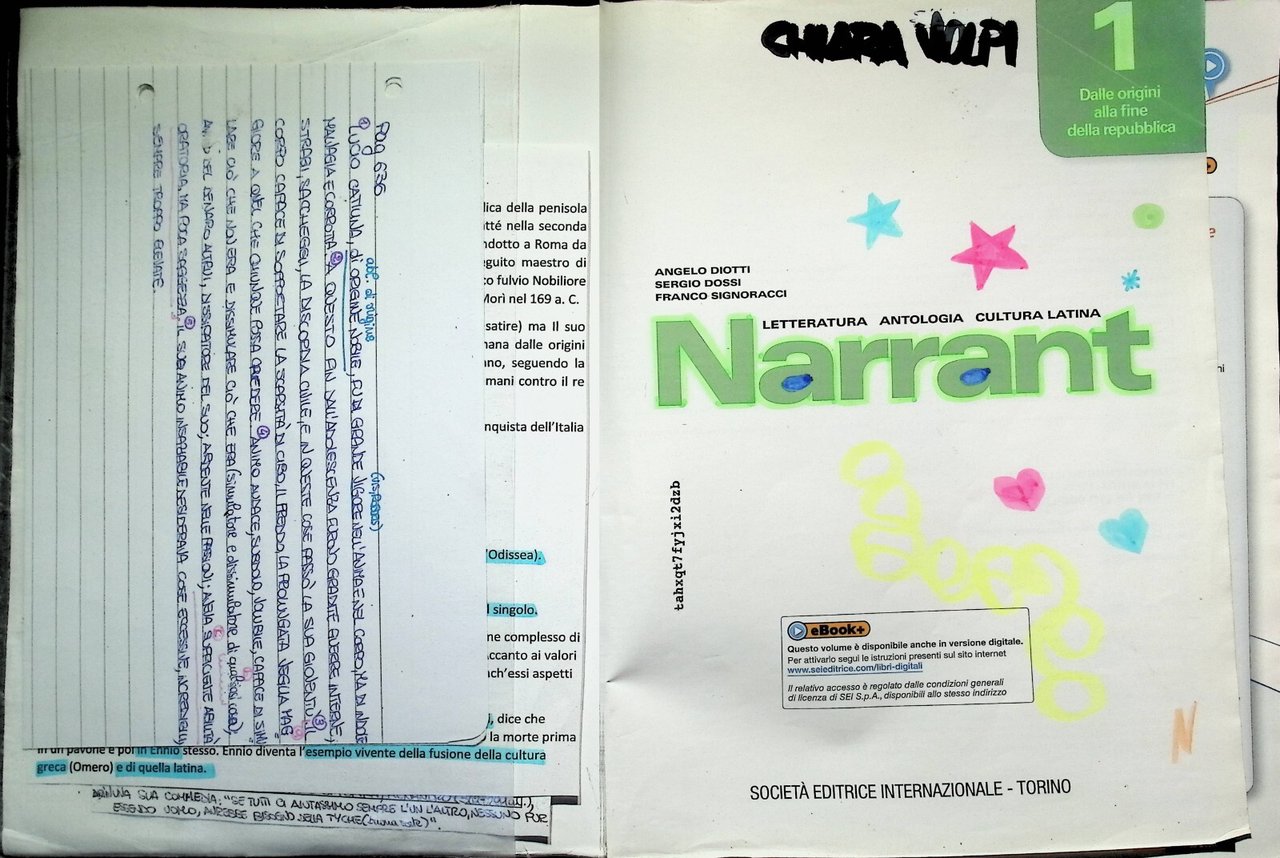 Pag 636
① LUCIO CATILINA, di ORIGINE NOBILE, FU DI GRANDE VIGORE NELL'ANIMA E NEL CORPO, MA DI INDOLE
abl. di origine
(vis, roboris)
MALVAGIA E CORROTTA. ② A QUESTO FIN DALL'ADOLESCENZA FURONO GRADITE GUERRE INTERNE,
STRAGI, SACCHEGGI, LA DISCORDIA CIVILE, E IN QUESTE COSE PASSÒ LA SUA GIOVENTÙ. ③ IL
CORPO CAPACE DI SOPPORTARE LA SCARSITÀ DI CIBO, IL FREDDO, LA PROLUNGATA VEGLIA MAG
GIORE A QUEL CHE CHIUNQUE POSSA CREDERE. ④ ANIMO AUDACE, SUBDOLO, VOLUBILE, CAPACE DI SIMU
LARE CIÒ CHE NON ERA E DISSIMULARE CIÒ CHE ERA (simulatore e dissimulatore di qualsiasi cosa),
DEL DENARO ALTRUI, DISSIPATORE DEL SUO; ARDENTE NELLE PASSIONI; AVEVA SUFFICIENTE ABILITÀ
ORATORIA, MA POCA SAGGEZZA. ⑤ IL SUO ANIMO INSAZIABILE DESIDERAVA COSE ECCESSIVE, INCREDIBILI,
SEMPRE TROPPO ELEVATE.
lica della penisola
tté nella seconda
ndotto a Roma da
eguito maestro di
o fulvio Nobiliore
Morì nel 169 a. C.
satire) ma Il suo
nana dalle origini
no, seguendo la
mani contro il re
nquista dell'Italia
'Odissea).
l singolo.
ne complesso di
Accanto ai valori
nch'essi aspetti
, dice che
la morte prima
in un pavone e poi in Ennio stesso. Ennio diventa l'esempio vivente della fusione della cultura
greca (Omero) e di quella latina.
UNA SUA COMMEDIA: "SE TUTTI CI AIUTASSIMO SEMPRE L'UN L'ALTRO, NESSUNO PUR
ESSENDO UOMO, AVREBBE BISOGNO DELLA TYCHE (buona sorte)".
CHIARA VOLPI
1
Dalle origini
alla fine
della repubblica
ANGELO DIOTTI
SERGIO DOSSI
FRANCO SIGNORACCI
LETTERATURA ANTOLOGIA CULTURA LATINA
Narrant
tahxqt7fyjxi2dzb
eBook+
Questo volume è disponibile anche in versione digitale.
Per attivarlo segui le istruzioni presenti sul sito internet
www.seieditrice.com/libri-digitali
Il relativo accesso è regolato dalle condizioni generali
di licenza di SEI S.p.A., disponibili allo stesso indirizzo
N
SOCIETÀ EDITRICE INTERNAZIONALE - TORINO